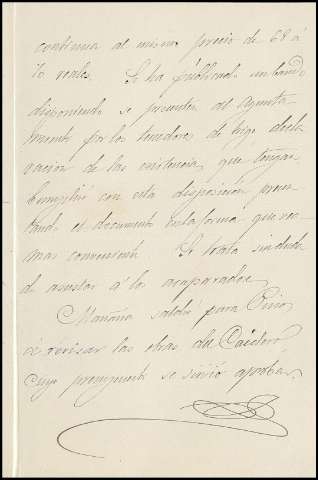 continua al mismo precio de 68 á
70 reales. Se ha publicado un bando
disponiendo se presenten al Ayunta
miento por los tenedores de trigo decla
racion de las existencias que tengan.
Cumpliré con esta disposicion presen
tando el documento en la forma que vea
mas conveniente. Se trata sin duda
de asustar á los acaparadores.
Mañana saldré para
á revisar las obras del
cuyo presupuesto se sirvió aprobar.